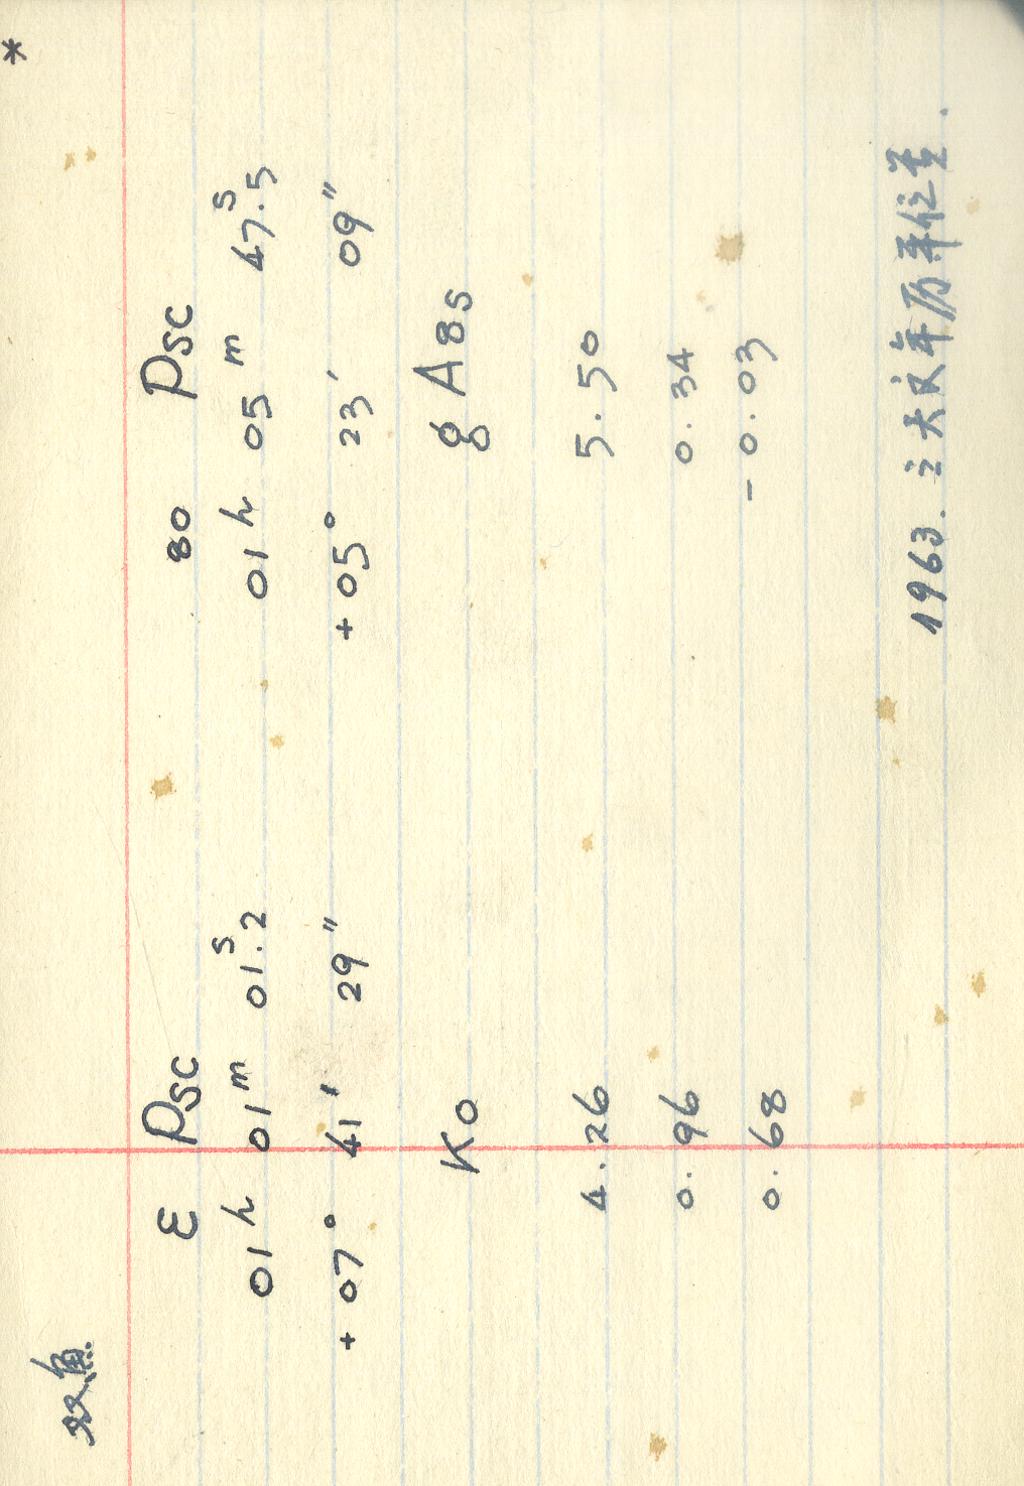 双鱼
*
ε Psc 80 Psc
01h 01m 01s.2 01h 05m 47s.5
+07° 41′ 29″ +05° 23′ 09″
K0 g A8s
4.26 5.50
0.96 0.34
0.68 -0.03
1963. 之天文年历平位置.